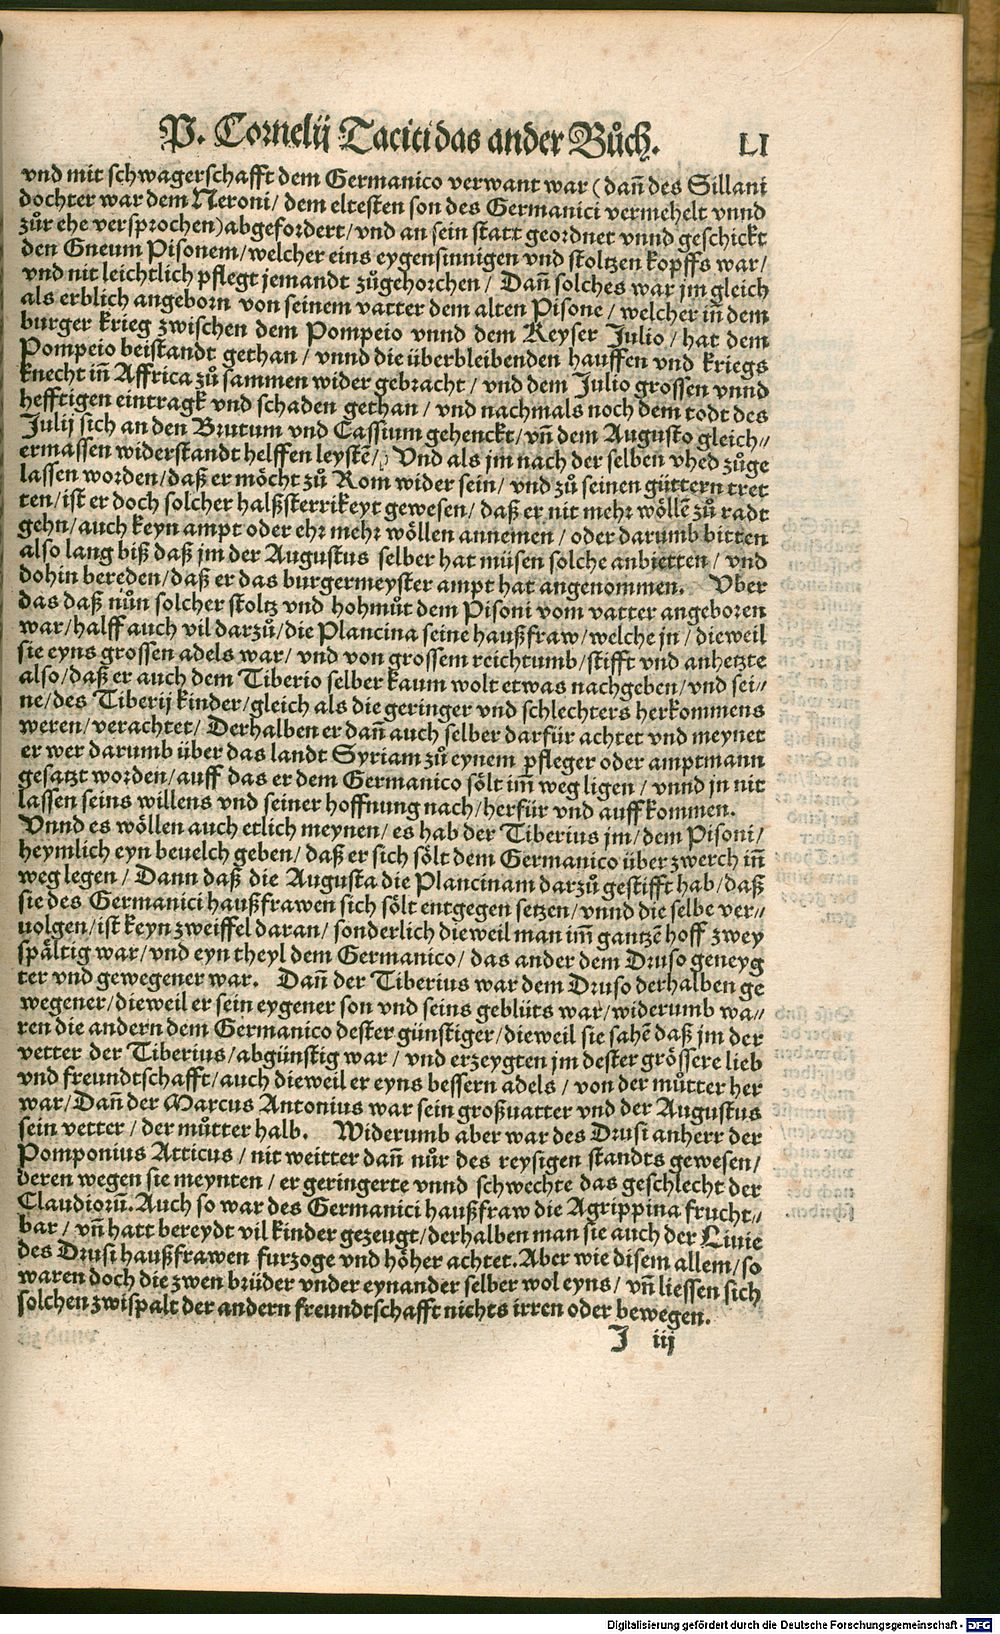 P. Cornelij Taciti das ander Bůch. LI
vnd mit schwagerschafft dem Germanico verwant war (dañ des Sillani
dochter war dem Neroni/ dem eltesten son des Germanici vermehelt vnnd
zůr ehe versprochen) abgefordert/ vnd an sein statt geordnet vnnd geschickt
den Gneum Pisonem/ welcher eins eygensinnigen vnd stoltzen kopffs war/
vnd nit leichtlich pflegt jemandt zůgehorchen/ Dañ solches war jm gleich
als erblich angeborn von seinem vatter dem alten Pisone/ welcher iñ dem
burger krieg zwischen dem Pompeio vnnd dem Keyser Julio/ hat dem
Pompeio beistandt gethan/ vnnd die überbleibenden hauffen vnd kriegs
knecht iñ Affrica zů sammen wider gebracht/ vnd dem Julio grossen vnnd
hefftigen eintragk vnd schaden gethan/ vnd nachmals noch dem todt des
Julij sich an den Brutum vnd Cassium gehenckt/ vñ dem Augusto gleich⸗
ermassen widerstandt helffen leystẽ/ Vnd als jm nach der selben vhed zůge
lassen worden/ daß er möcht zů Rom wider sein/ vnd zů seinen güttern tret
ten/ ist er doch solcher halßsterrikeyt gewesen/ daß er nit mehr wöllẽ zů radt
gehn/ auch keyn ampt oder ehr mehr wöllen annemen/ oder darumb bitten
also lang biß daß jm der Augustus selber hat müsen solche anbietten/ vnd
dohin bereden/ daß er das burgermeyster ampt hat angenommen. Vber
das daß nůn solcher stoltz vnd hohmůt dem Pisoni vom vatter angeboren
war/ halff auch vil darzů/ die Plancina seine haußfraw/ welche jn/ dieweil
sie eyns grossen adels war/ vnd von grossem reichtumb/ stifft vnd anhetzte
also/ daß er auch dem Tiberio selber kaum wolt etwas nachgeben/ vnd sei⸗
ne/ des Tiberij kinder/ gleich als die geringer vnd schlechters herkommens
weren/ verachtet/ Derhalben er dañ auch selber darfür achtet vnd meynet
er wer darumb über das landt Syriam zů eynem pfleger oder amptmann
gesatzt worden/ auff das er dem Germanico sölt im̃ weg ligen/ vnnd jn nit
lassen seins willens vnd seiner hoffnung nach/ herfür vnd auff kommen.
Vnnd es wöllen auch etlich meynen/ es hab der Tiberius jm/ dem Pisoni/
heymlich eyn beuelch geben/ daß er sich sölt dem Germanico über zwerch iñ
weg legen/ Dann daß die Augusta die Plancinam darzů gestifft hab/ daß
sie des Germanici haußfrawen sich sölt entgegen setzen/ vnnd die selbe ver⸗
uolgen/ ist keyn zweiffel daran/ sonderlich dieweil man im̃ gantzẽ hoff zwey
spältig war/ vnd eyn theyl dem Germanico/ das ander dem Druso geneyg
ter vnd gewegener war. Dañ der Tiberius war dem Druso derhalben ge
wegener/ dieweil er sein eygener son vnd seins geblüts war/ widerumb wa⸗
ren die andern dem Germanico dester günstiger/ dieweil sie sahẽ daß jm der
vetter der Tiberius/ abgünstig war/ vnd erzeygten jm dester grössere lieb
vnd freundtschafft/ auch dieweil er eyns bessern adels/ von der můtter her
war/ Dañ der Marcus Antonius war sein großuatter vnd der Augustus
sein vetter/ der můtter halb. Widerumb aber war des Drusi anherr der
Pomponius Atticus/ nit weitter dañ nůr des reysigen standts gewesen/
deren wegen sie meynten/ er geringerte vnnd schwechte das geschlecht der
Claudiorũ. Auch so war des Germanici haußfraw die Agrippina frucht⸗
bar/ vñ hatt bereydt vil kinder gezeugt/ derhalben man sie auch der Liuie
des Drusi haußfrawen furzoge vnd höher achtet. Aber wie disem allem/ so
waren doch die zwen brüder vnder eynander selber wol eyns/ vñ liessen sich
solchen zwispalt der andern freundtschafft nichts irren oder bewegen.
J iij
Digitalisierung gefördert durch die Deutsche Forschungsgemeinschaft - DFG